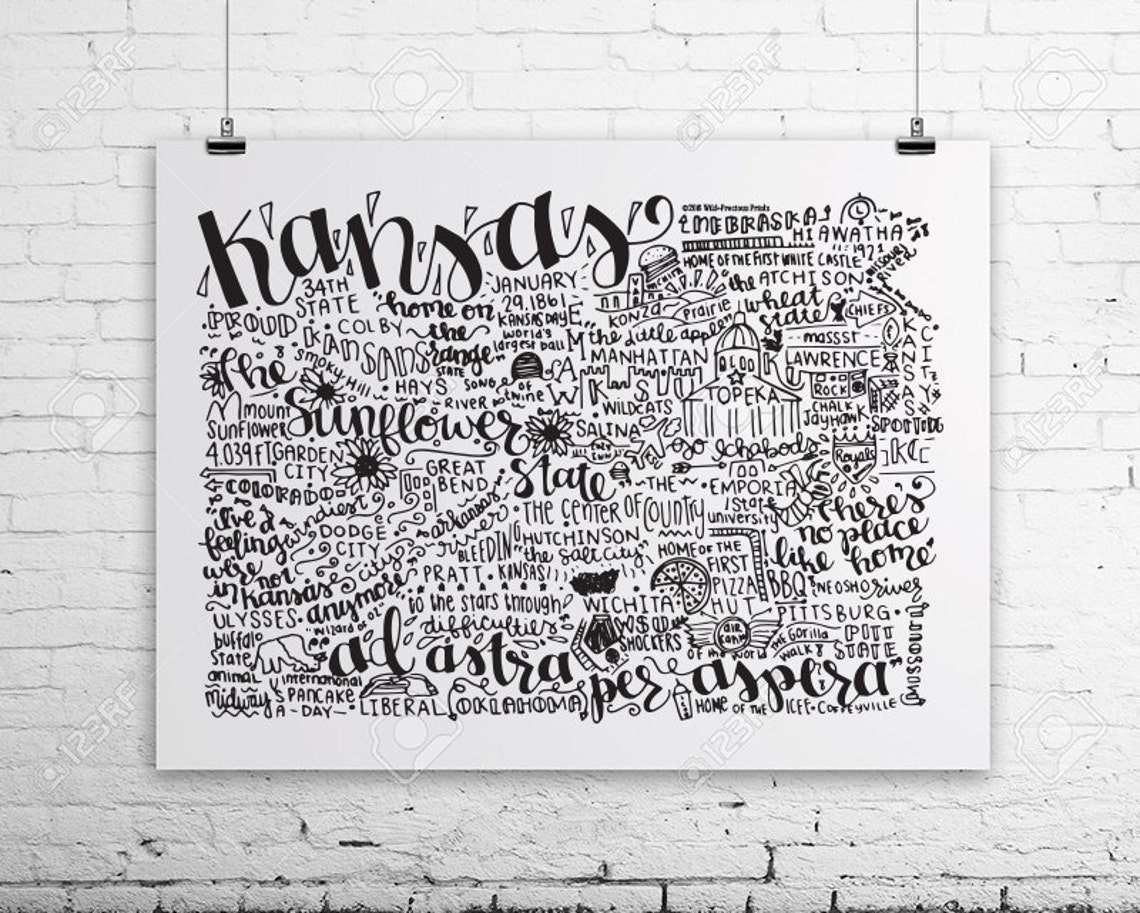 kansas
©2016 Wild+Precious Prints
NEBRASKA
HIAWATHA
HOME OF THE FIRST WHITE CASTLE 1921
MISSOURI RIVER
34TH STATE
JANUARY 29, 1861
KANSAS DAY
WICHITA
the ATCHISON
"home on the range"
STATE SONG
KONZA prairie
wheat state
CHIEFS
KANSAS CITY
PROUD KANSANS
COLBY
world's largest ball of twine
"the little apple"
MANHATTAN
massst
LAWRENCE
the Sunflower State
SMOKY Hill RIVER
HAYS
KSU
WILDCATS
TOPEKA
ROCK CHALK JAYHAWK
SPORTING KC
MOUNT SUNFLOWER 4,039 FT
SALINA
GARDEN CITY
go Ichabods
Royals
COLORADO
GREAT BEND
THE CENTER OF COUNTRY
EMPORIA State university
there's no place like home
"I've a feeling we're not in kansas anymore"
"wizard of oz"
windiest city
DODGE CITY
arkansas river
HUTCHINSON
"the salt city"
BLEEDING KANSAS!!!
HOME OF THE FIRST PIZZA HUT
BBQ
NEOSHO river
PRATT
WICHITA
PITTSBURG
MISSOURI
ULYSSES
to the stars through difficulties
WSU SHOCKERS
AIR CAPITAL of the world
the Gorilla walk
PITT STATE
buffalo state animal
ad astra per aspera
midway USA
international PANCAKE DAY
LIBERAL
OKLAHOMA
HOME OF THE ICEE
COFFEYVILLE